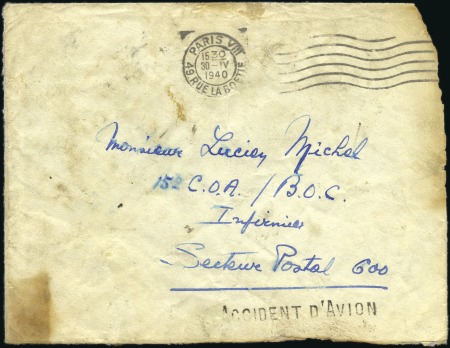 PARIS VIII
15 30
30-IV
1940
49, RUE LA BOETIE
Monsieur Lucien Michel
152 C.O.A. / B.O.C.
Infirmier
Secteur Postal 600
ACCIDENT D'AVION